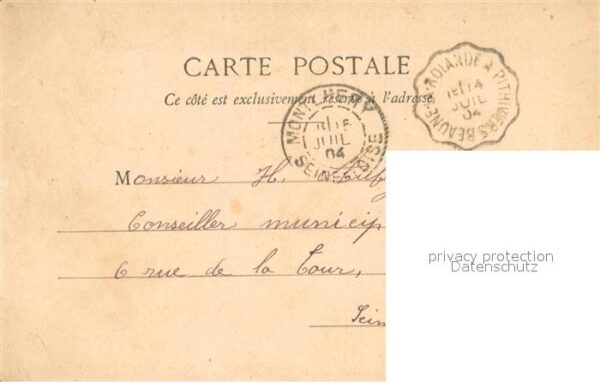 CARTE POSTALE
Ce côté est exclusivement réservé à l'adresse
MONTLHERY
15
JUIL
04
SEINE-ET-OISE
BEAUNE-LA-ROLANDE A PITHIVIERS
14
JUIL
04
Monsieur H.
Conseiller municip
6 rue de la Tour,
Sein
privacy protection
Datenschutz